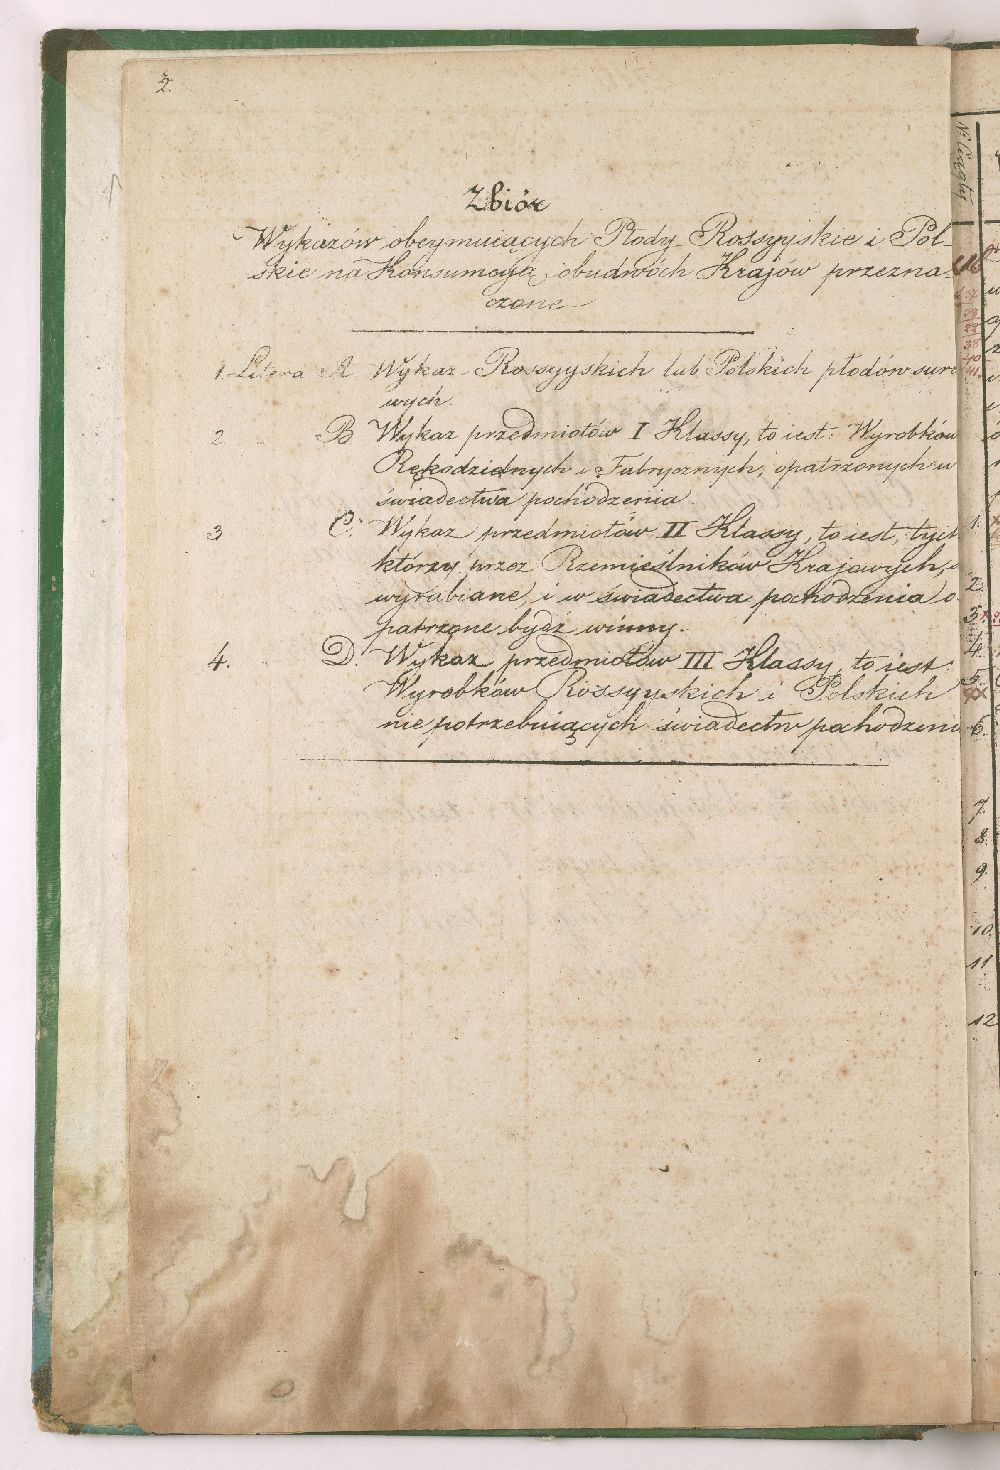 2.
Zbiór
Wykazów obeymuiących Płody Rossyyskie i Pol-
skie na Konsumcyą obudwóch Krajów przezna-
czone
1. Litera A Wykaz Rossyyskich lub Polskich płodów suro
wych.
2 B Wykaz przedmiotów I Klassy, to iest: Wyrobków
Rękodzielnych i Fabrycznych, opatrzonych w
świadectwa pochodzenia.
3 C. Wykaz przedmiotów II Klassy, to iest, tych
którzy przez Rzemieślników Krajowych,
wyrabiane, i w świadectwa pochodzenia o
patrzone bydź winny.
4. D. Wykaz przedmiotów III Klassy, to iest:
Wyrobków Rossyyskich i Polskich
nie potrzebuiących świadectw pochodzeni
1.
2.
3.
4.
5.
XX
6.
7.
8.
9.
10.
11.
12